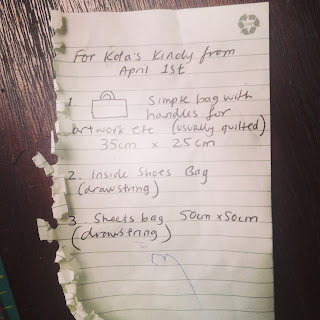 For Kota's Kindy from
April 1st
1. Simple bag with
handles for
artwork etc (usually quilted)
35cm x 25cm
2. Inside Shoes Bag
(drawstring)
3. Sheets bag 50cm x 50cm
(drawstring)